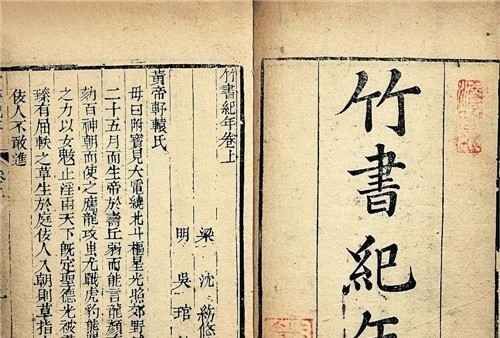 竹書紀年
竹書紀年卷上
梁 沈約
明 吳琯
黃帝軒轅氏
母曰附寶見大電繞北斗樞星光照郊野
二十五月而生帝於壽丘弱而能言龍顏
劾百神朝而使之應龍攻蚩尤戰虎豹熊
之力以女魃止淫雨天下既定聖德光被
臻有屈軼之草生於庭佞人入朝則草指
佞人不敢進